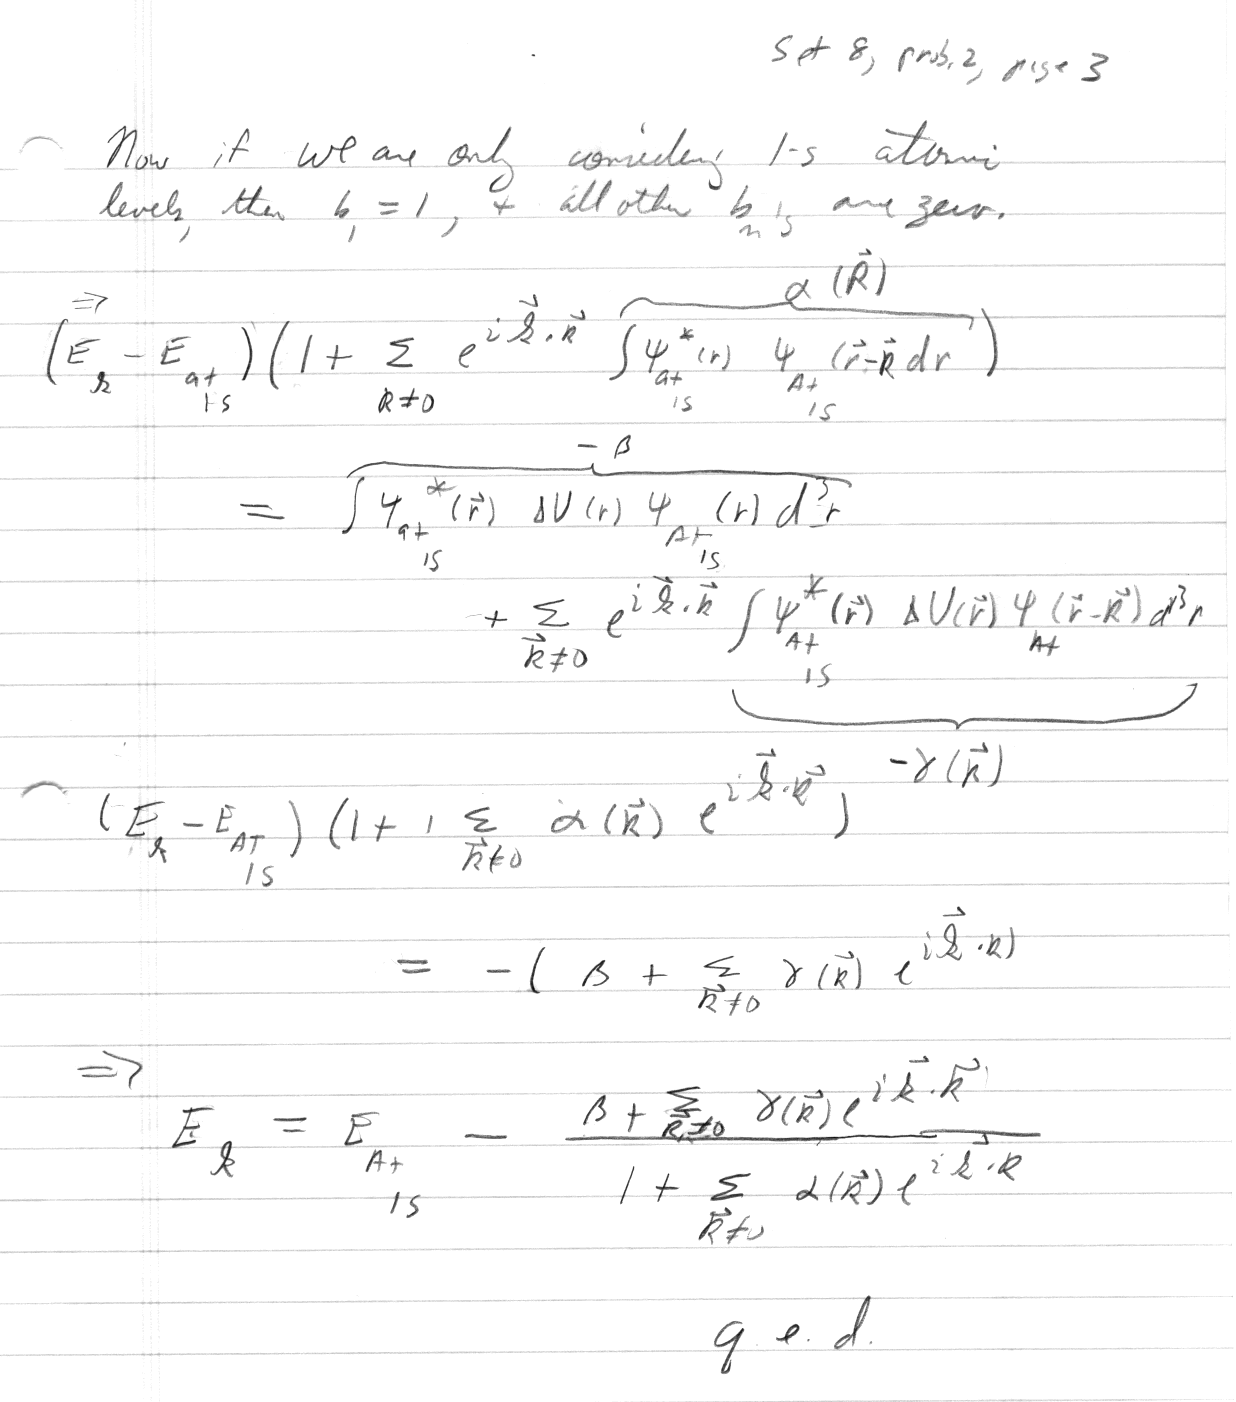 Set 8, prob. 2, page 3
Now if we are only considering 1-s atomic
levels, then b₁ = 1, + all other bₙ's are zero.
⇒
α(R⃗)
(E_k - E_at 1s)(1 + Σ_{R≠0} e^{i k⃗·R⃗} ∫ψ*_at 1s(r) ψ_At 1s(r⃗-R⃗ dr)
-β
= ∫ψ*_at 1s(r⃗) ΔU(r) ψ_At 1s(r) d³r
+ Σ_{R⃗≠0} e^{i k⃗·R⃗} ∫ψ*_At 1s(r⃗) ΔU(r⃗) ψ_At(r⃗-R⃗) d³r
-γ(R⃗)
(E_k - E_AT 1s)(1 + Σ_{R⃗≠0} α(R⃗) e^{i k⃗·R⃗})
= -(β + Σ_{R⃗≠0} γ(R⃗) e^{i k⃗·R})
⇒
E_k = E_At 1s - (β + Σ_{R⃗≠0} γ(R⃗) e^{i k⃗·R⃗}) / (1 + Σ_{R⃗≠0} α(R⃗) e^{i k⃗·R})
q.e.d.